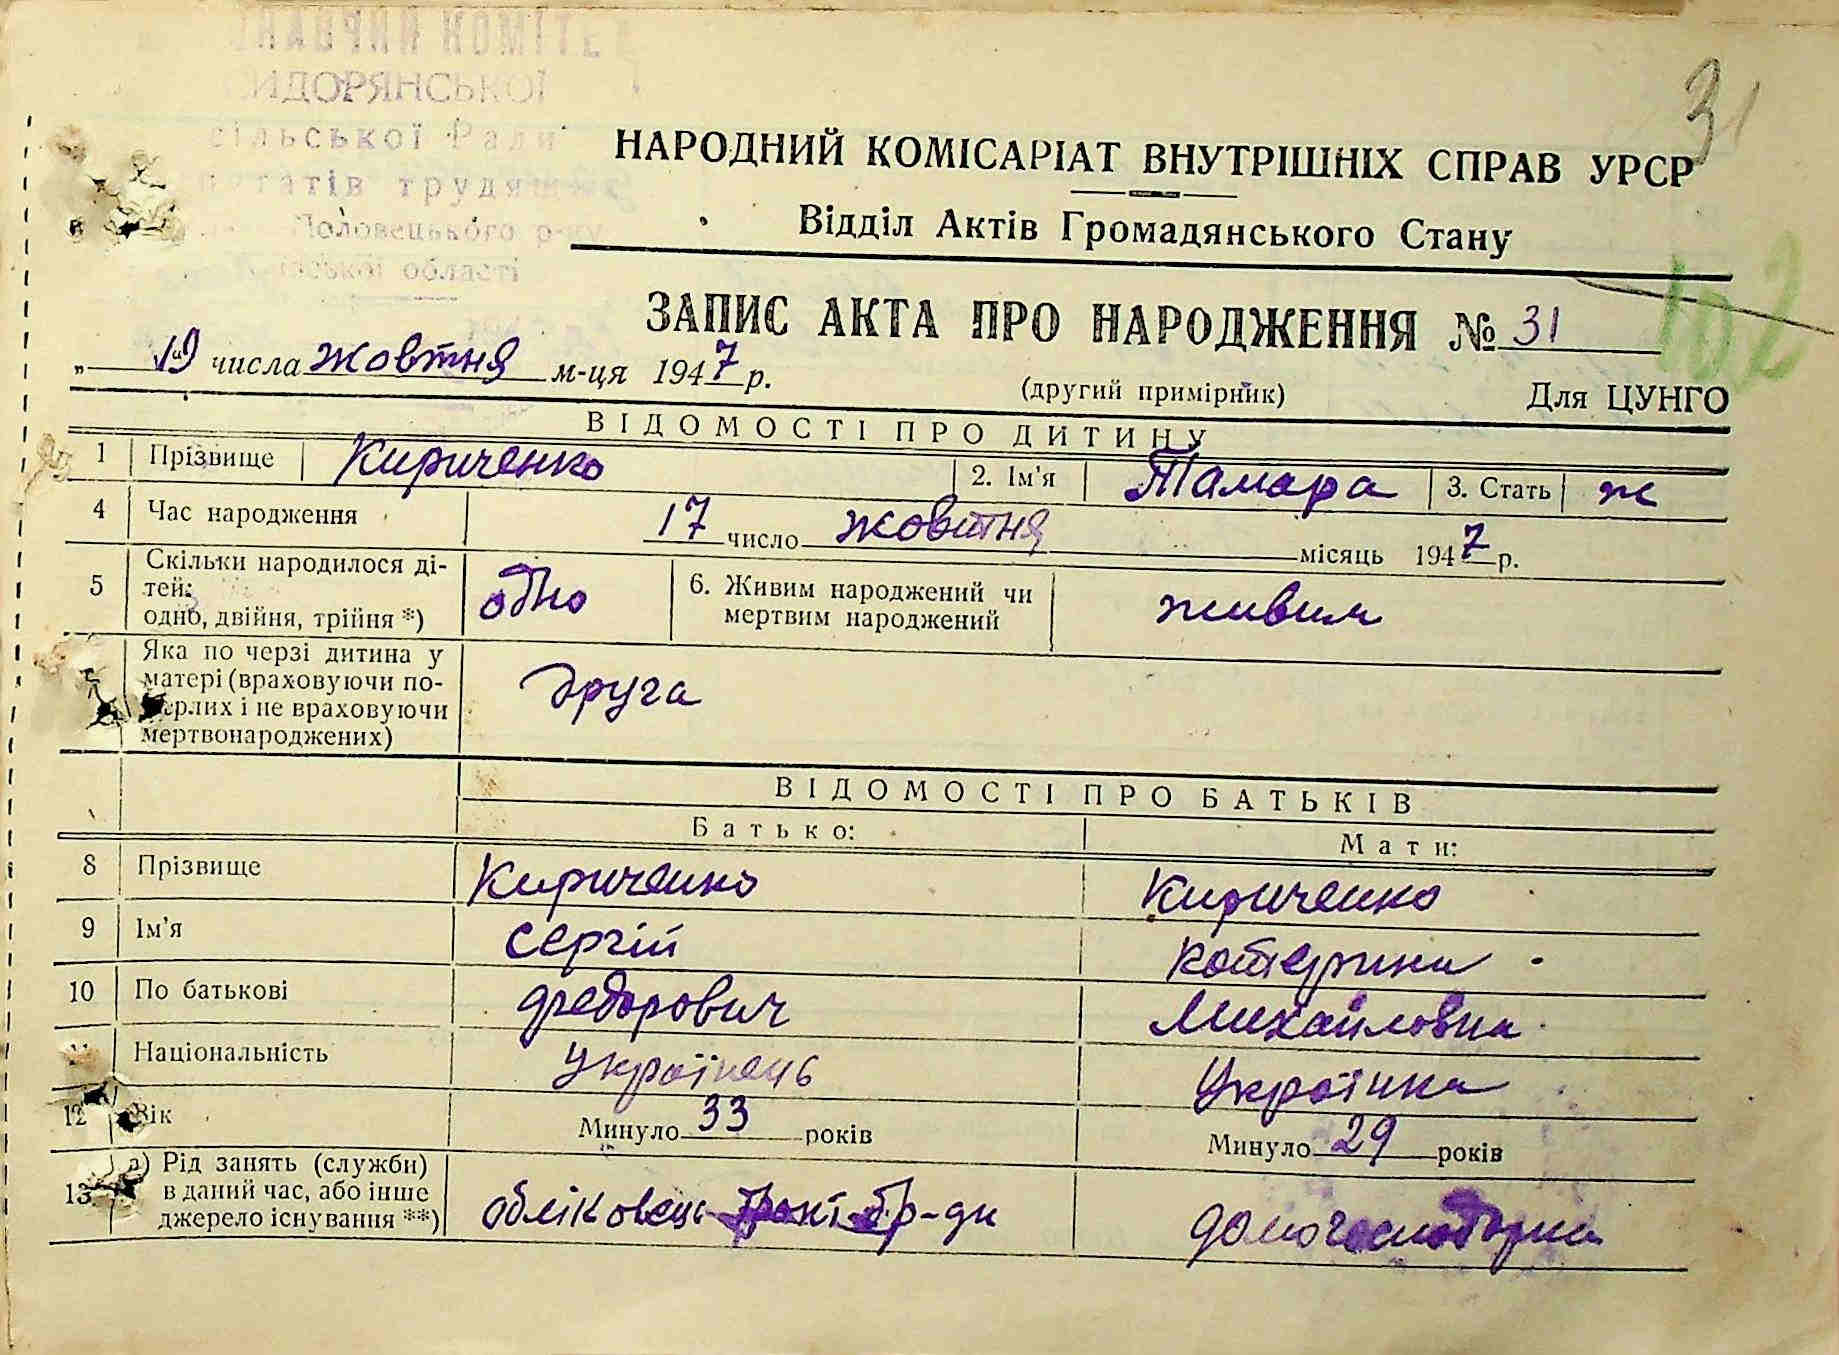 НАВЧИЙ КОМІТЕ
ИДОРЯНСЬКОЇ
сільської Ради
татів трудящих
Половецького р-ну
ської області
31
НАРОДНИЙ КОМІСАРІАТ ВНУТРІШНІХ СПРАВ УРСР
Відділ Актів Громадянського Стану
102
ЗАПИС АКТА ПРО НАРОДЖЕННЯ № 31
„19" числа жовтня м-ця 1947 р.
(другий примірник) Для ЦУНГО
ВІДОМОСТІ ПРО ДИТИНУ
1 Прізвище Кириченко 2. Ім'я Тамара 3. Стать ж
4 Час народження 17 число жовтня місяць 1947 р.
5 Скільки народилося ді-
тей:
одно, двійня, трійня *) одно 6. Живим народжений чи
мертвим народжений живим
Яка по черзі дитина у
матері (враховуючи по-
мерлих і не враховуючи
мертвонароджених) друга
ВІДОМОСТІ ПРО БАТЬКІВ
Батько: Мати:
8 Прізвище Кириченко Кириченко
9 Ім'я Сергій Котерина
10 По батькові Федорович Михайловна
Національність Українець Українка
12 Вік Минуло 33 років Минуло 29 років
13 а) Рід занять (служби)
в даний час, або інше
джерело існування **) обліковець тракт бр-ди домогосподарка